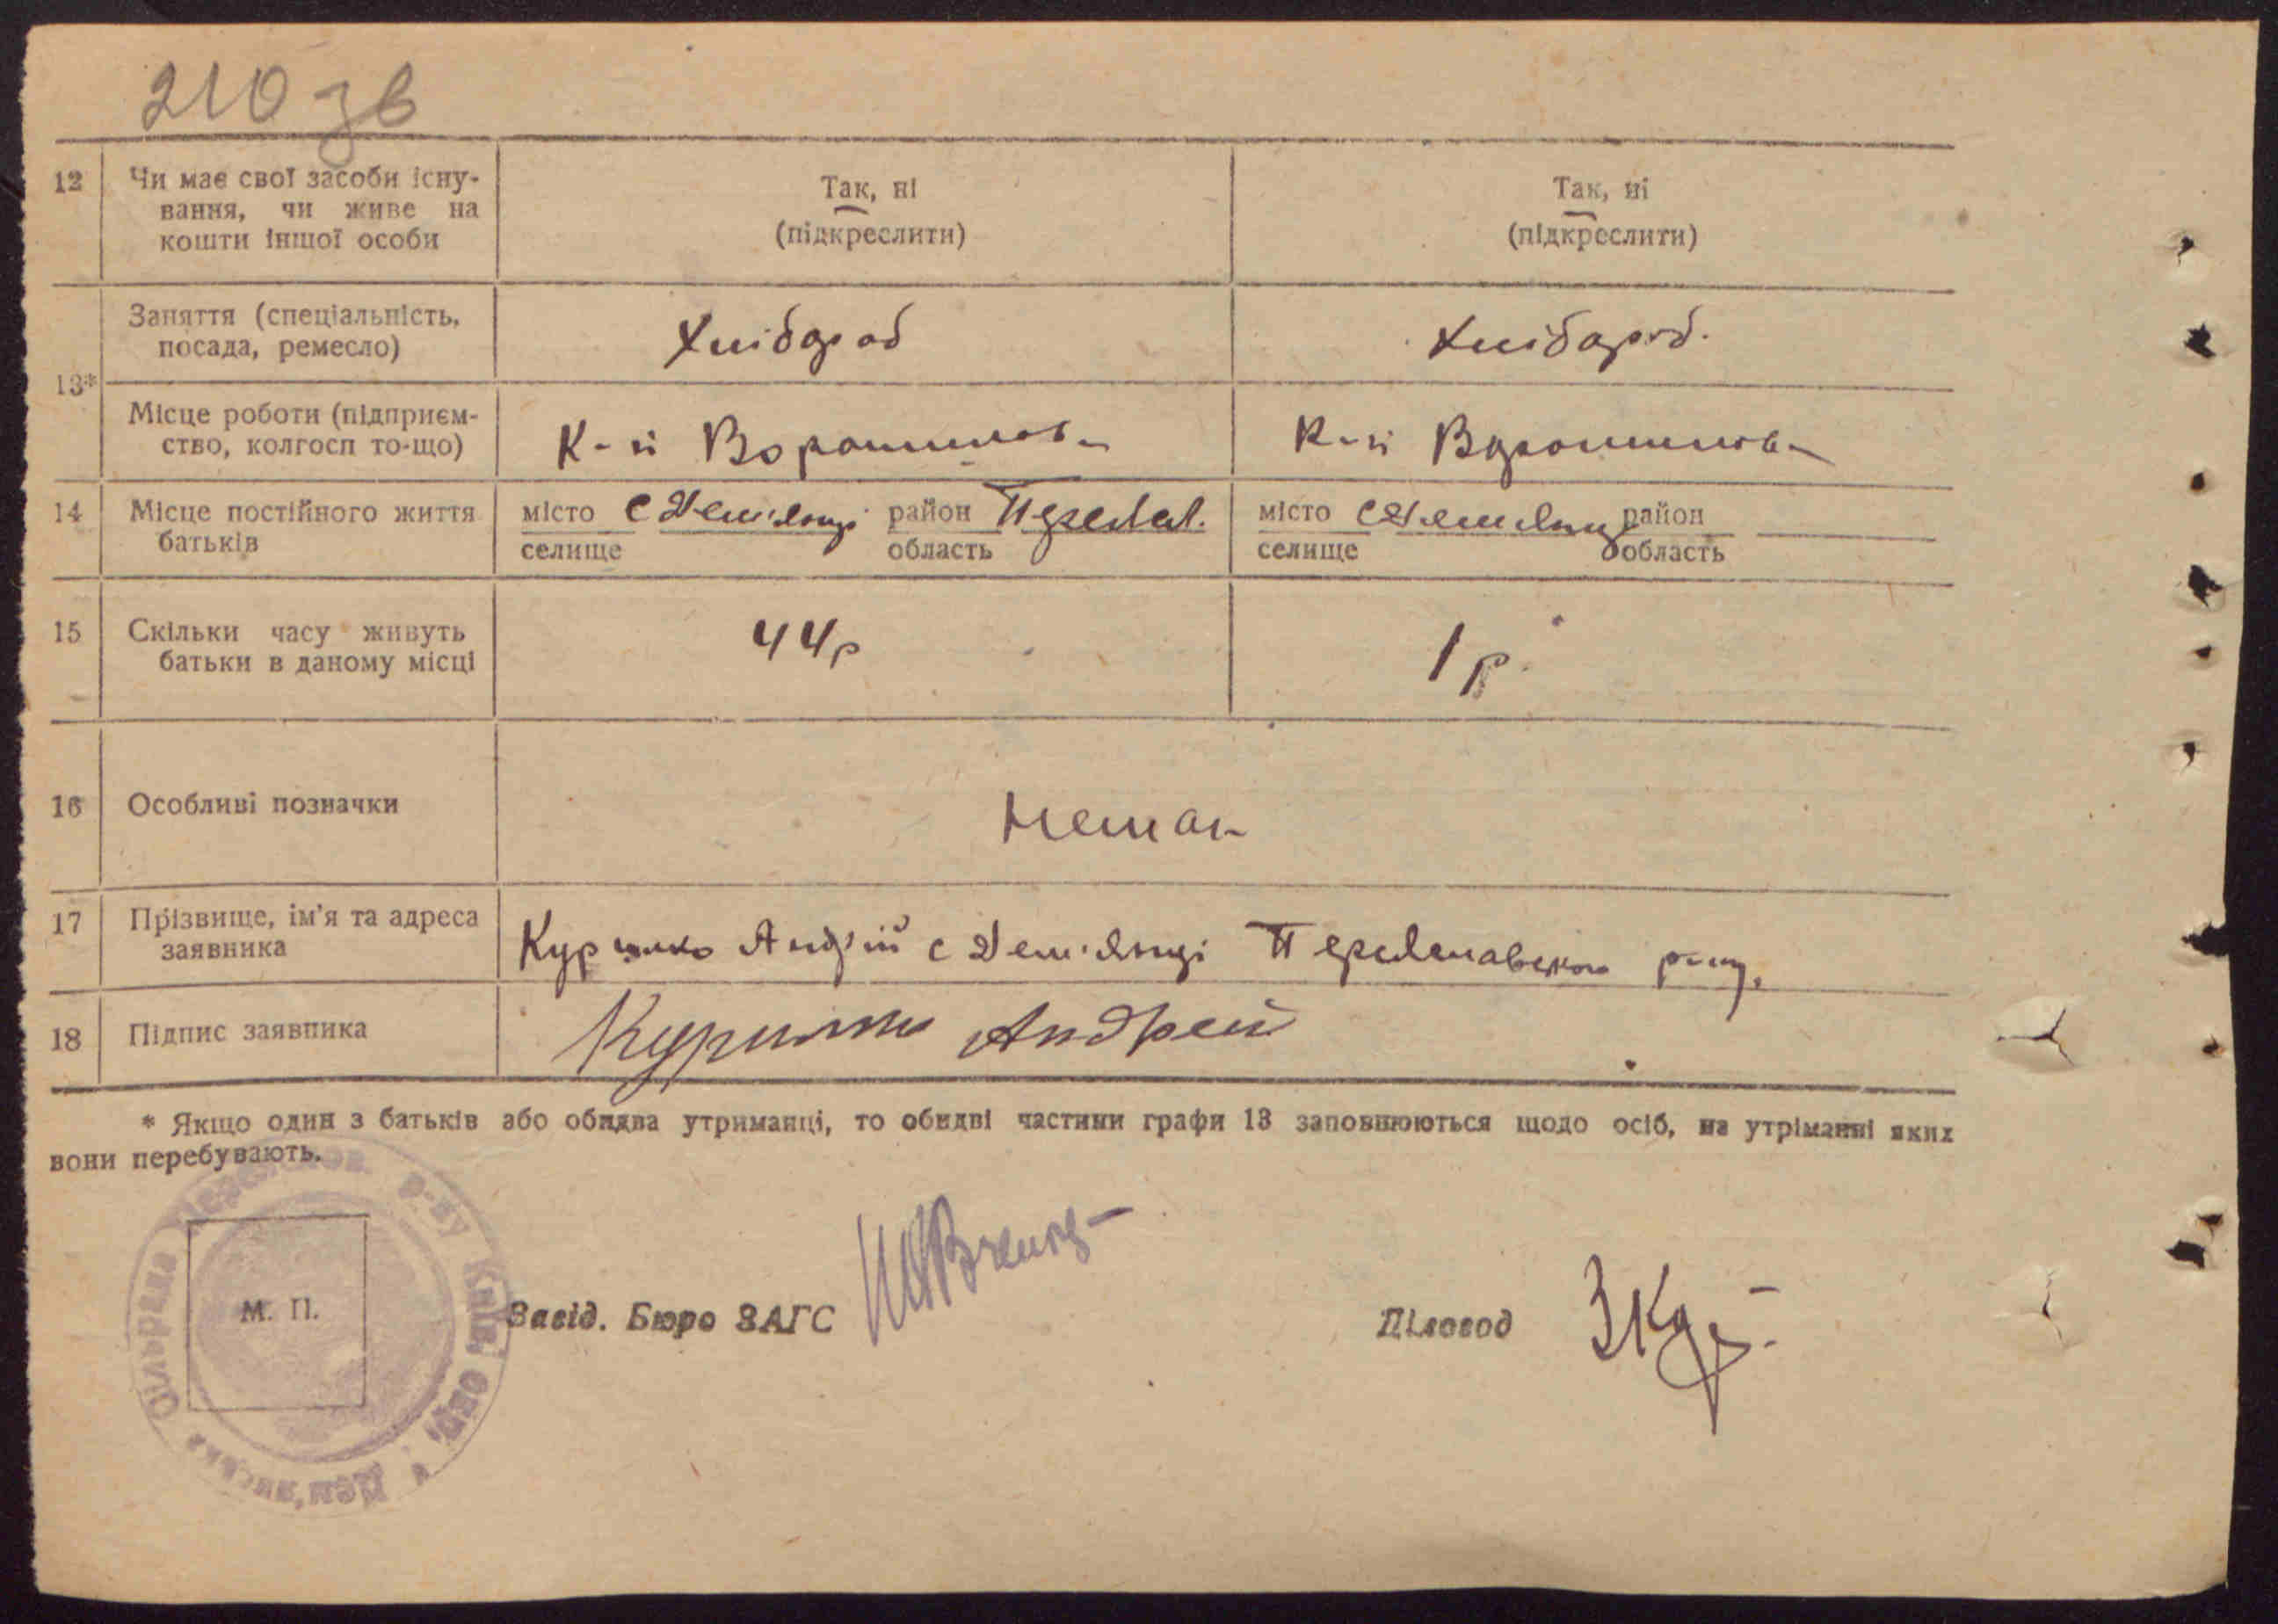 210 зв
12 Чи має свої засоби існу-
вання, чи живе на
кошти іншої особи
Так, ні
(підкреслити)
Так, ні
(підкреслити)
13*
Заняття (спеціальність,
посада, ремесло)
Хлібороб
Хлібороб.
Місце роботи (підприєм-
ство, колгосп то-що)
К-п Ворошилова
К-п Ворошилова
14 Місце постійного життя
батьків
місто с Дем'янці район Переясл.
селище область
місто с Дем'янці район
селище область
15 Скільки часу живуть
батьки в даному місці
44р
1р.
16 Особливі позначки
Немає
17 Прізвище, ім'я та адреса
заявника
Андрій с Дем'янці Переяславського р-ну.
18 Підпис заявника
Андрей
* Якщо один з батьків або обидва утриманці, то обидві частини графи 13 заповнюються щодо осіб, на утріманні яких
вони перебувають.
М. П.
Завід. Бюро ЗАГС
Діловод
Дем'янська сільрада Переяслов. р-ну Київ. обл.